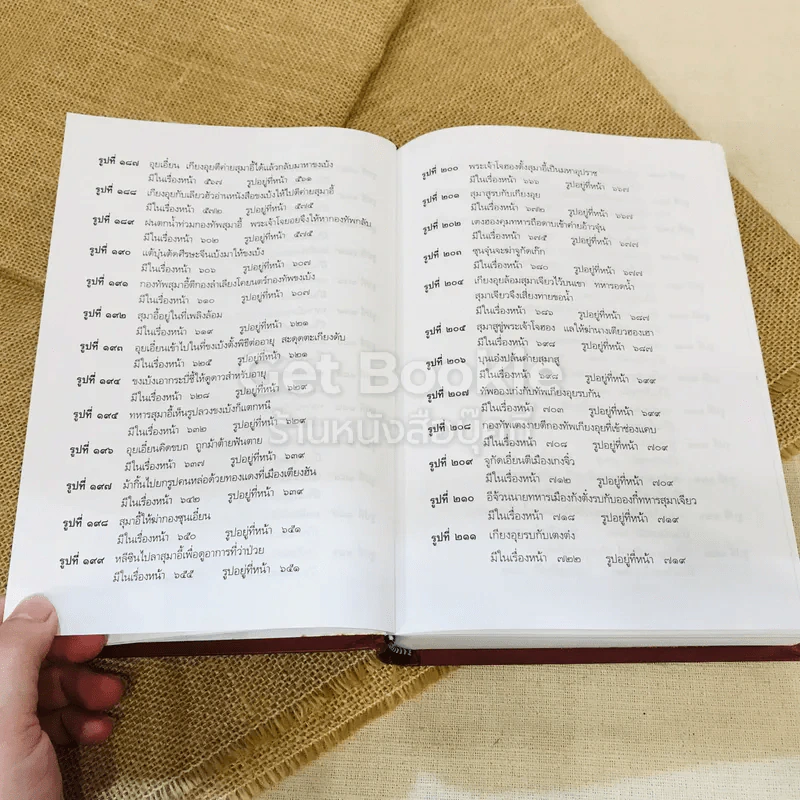 รูปที่ ๑๘๗ อุยเอี๋ยน เกียงอุยตีค่ายสุมาอี้ได้แล้วกลับมาหาขงเบ้ง
มีในเรื่องหน้า ๕๖๗ รูปอยู่ที่หน้า ๕๖๑
รูปที่ ๑๘๘ เกียงอุยกับเลียวฮัวอ่านหนังสือขงเบ้งให้ไปตีค่ายสุมาอี้
มีในเรื่องหน้า ๕๗๒ รูปอยู่ที่หน้า ๕๗๕
รูปที่ ๑๘๙ ฝนตกน้ำท่วมกองทัพสุมาอี้ พระเจ้าโจยอยจึงให้หากองทัพกลับ
มีในเรื่องหน้า ๖๐๒ รูปอยู่ที่หน้า ๕๗๕
รูปที่ ๑๙๐ แต้บุ๋นตัดศีรษะจีนเบ้งมาให้ขงเบ้ง
มีในเรื่องหน้า ๖๐๖ รูปอยู่ที่หน้า ๖๐๗
รูปที่ ๑๙๑ กองทัพสุมาอี้ตีกองลำเลียงโคยนตร์กองทัพขงเบ้ง
มีในเรื่องหน้า ๖๑๐ รูปอยู่ที่หน้า ๖๐๗
รูปที่ ๑๙๒ สุมาอี้อยู่ในที่เพลิงล้อม
มีในเรื่องหน้า ๖๑๙ รูปอยู่ที่หน้า ๖๒๑
รูปที่ ๑๙๓ อุยเอี๋ยนเข้าไปในที่ขงเบ้งตั้งพิธีต่ออายุ สะดุดตะเกียงดับ
มีในเรื่องหน้า ๖๒๕ รูปอยู่ที่หน้า ๖๒๑
รูปที่ ๑๙๔ ขงเบ้งเอากระบี่ชี้ให้ดูดาวสำหรับอายุ
มีในเรื่องหน้า ๖๒๘ รูปอยู่ที่หน้า ๖๒๙
รูปที่ ๑๙๕ ทหารสุมาอี้เห็นรูปลวงขงเบ้งก็แตกหนี
มีในเรื่องหน้า ๖๓๒ รูปอยู่ที่หน้า ๖๒๙
รูปที่ ๑๙๖ อุยเอี๋ยนคิดขบถ ถูกม้าต้ายฟันตาย
มีในเรื่องหน้า ๖๓๗ รูปอยู่ที่หน้า ๖๓๙
รูปที่ ๑๙๗ ม้ากิ้นไปยกรูปคนหล่อด้วยทองแดงที่เมืองเตียงฮัน
มีในเรื่องหน้า ๖๔๒ รูปอยู่ที่หน้า ๖๓๙
รูปที่ ๑๙๘ สุมาอี้ให้ฆ่ากองซุนเอี๋ยน
มีในเรื่องหน้า ๖๕๐ รูปอยู่ที่หน้า ๖๕๑
รูปที่ ๑๙๙ หลีซินไปลาสุมาอี้เพื่อดูอาการที่ว่าป่วย
มีในเรื่องหน้า ๖๕๕ รูปอยู่ที่หน้า ๖๕๑
รูปที่ ๒๐๐ พระเจ้าโจฮองตั้งสุมาอี้เป็นมหาอุปราช
มีในเรื่องหน้า ๖๖๖ รูปอยู่ที่หน้า ๖๖๗
รูปที่ ๒๐๑ สุมาสูรบกับเกียงอุย
มีในเรื่องหน้า ๖๗๒ รูปอยู่ที่หน้า ๖๖๗
รูปที่ ๒๐๒ เตงฮองคุมทหารถือดาบเข้าค่ายฮ้าวจุ๋น
มีในเรื่องหน้า ๖๗๕ รูปอยู่ที่หน้า ๖๗๗
รูปที่ ๒๐๓ ซุนจุ๋นจะฆ่าจูกัดเก๊ก
มีในเรื่องหน้า ๖๘๐ รูปอยู่ที่หน้า ๖๗๗
รูปที่ ๒๐๔ เกียงอุยล้อมสุมาเจียวไว้บนเขา ทหารอดน้ำ
สุมาเจียวจึงเสี่ยงทายขอน้ำ
มีในเรื่องหน้า ๖๘๖ รูปอยู่ที่หน้า ๖๘๗
รูปที่ ๒๐๕ สุมาสูขู่พระเจ้าโจฮอง แลให้ฆ่านางเตียวฮองเฮา
มีในเรื่องหน้า ๖๙๘ รูปอยู่ที่หน้า ๖๘๗
รูปที่ ๒๐๖ บุนเอ๋งปล้นค่ายสุมาสู
มีในเรื่องหน้า ๖๙๘ รูปอยู่ที่หน้า ๖๙๙
รูปที่ ๒๐๗ ทัพอองเก๋งกับทัพเกียงอุยรบกัน
มีในเรื่องหน้า ๗๐๓ รูปอยู่ที่หน้า ๖๙๙
รูปที่ ๒๐๘ กองทัพเตงงายตีกองทัพเกียงอุยที่เข้าช่องแคบ
มีในเรื่องหน้า ๗๐๘ รูปอยู่ที่หน้า ๗๐๙
รูปที่ ๒๐๙ จูกัดเอี๋ยนตีเมืองเกงจิ๋ว
มีในเรื่องหน้า ๗๑๒ รูปอยู่ที่หน้า ๗๐๙
รูปที่ ๒๑๐ อีจ้วนนายทหารเมืองกังตั๋งรบกับอองกี๋ทหารสุมาเจียว
มีในเรื่องหน้า ๗๑๘ รูปอยู่ที่หน้า ๗๑๙
รูปที่ ๒๑๑ เกียงอุยรบกับเตงต๋ง
มีในเรื่องหน้า ๗๒๒ รูปอยู่ที่หน้า ๗๑๙
Get Bookie
ร้านหนังสือบุ๊กกี้